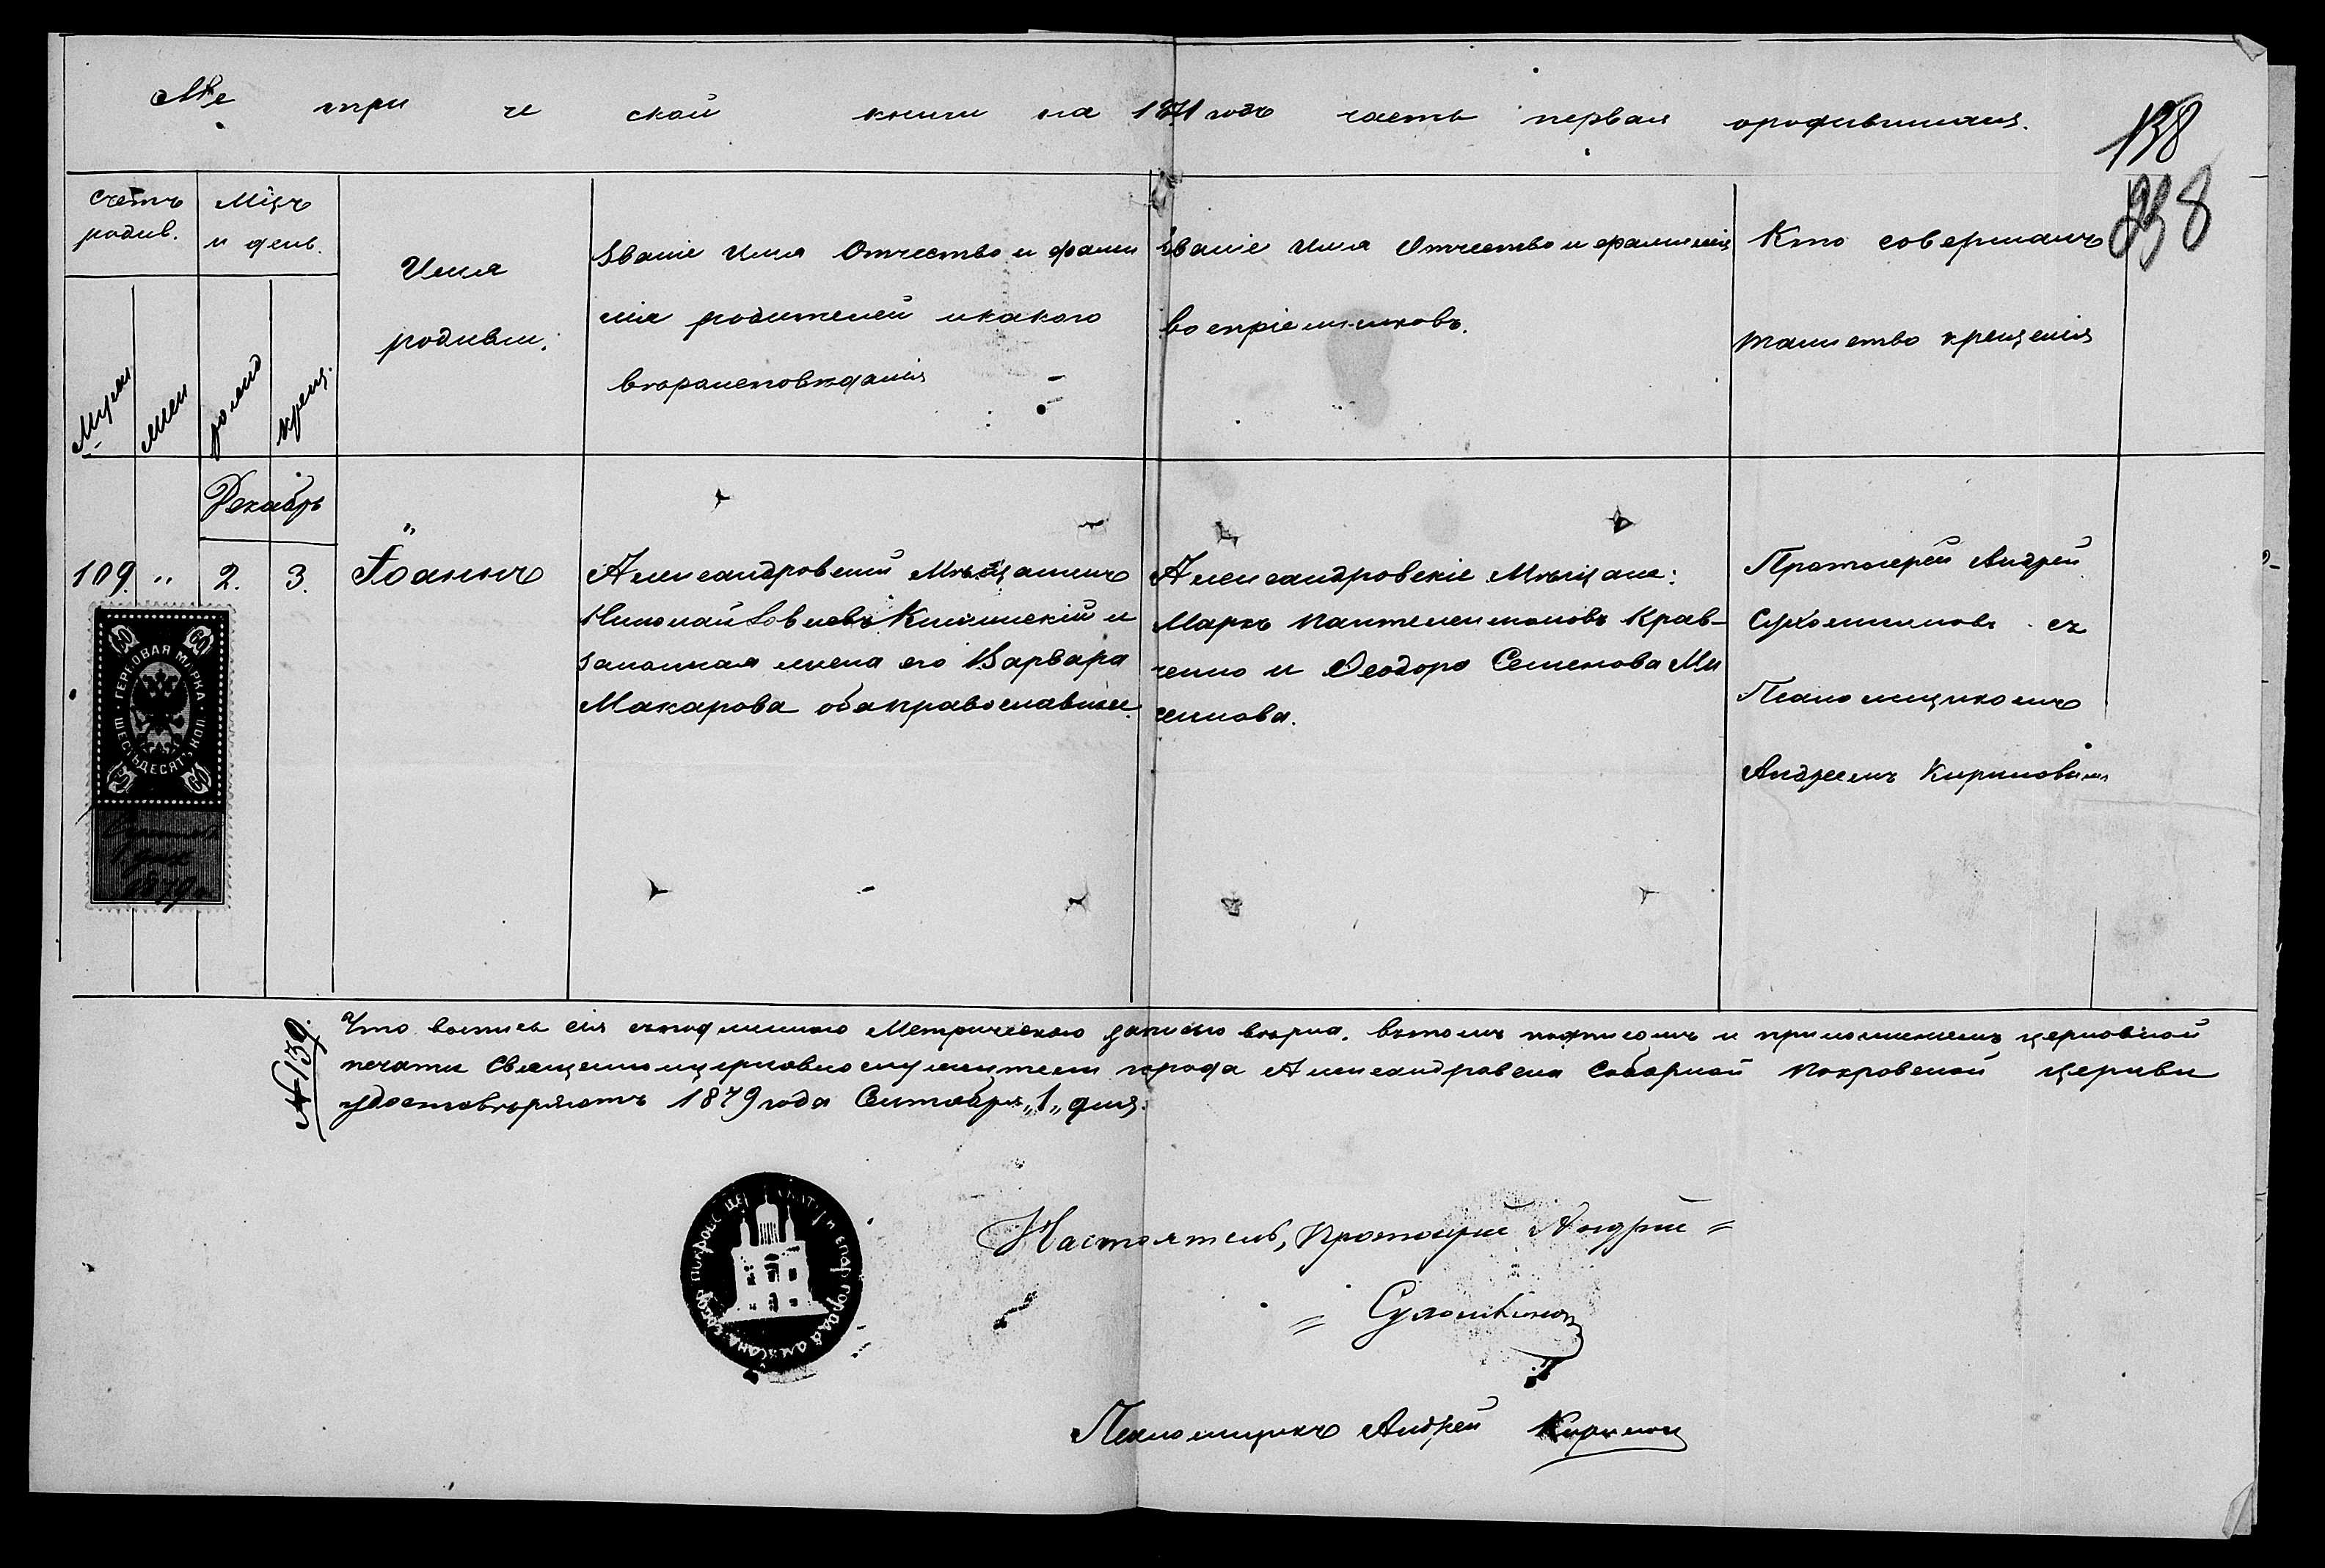 Ме три че ской книги на 1871 годъ часть первая ородившихся.
138
238
Счетъ родив.
Мцъ и день.
Имя родивш.
Званіе Имя Отчество и фами
лія родителей икакого
вѣроисповѣданія
Званіе Имя Отчество и фамилія
воспріемниковъ.
Кто совершалъ
таинство крещенія
Мужск
жен
рожд
крещ.
Декабрь
109. " 2. 3. Іоаннъ
Александровскій Мѣщанинъ
Николай
и
законная жена его Варвара
Макарова обаправославные.
Александровскіе Мѣщане:
Маркъ Пантелеимоновъ Крав-
ченко и Ѳеодора Семенова Ми
Протоіерей Андрей
Сухомлиновъ съ
Псаломщикомъ
Андреемъ Кириловымъ
60 60
ГЕРБОВАЯ МАРКА
ШЕСТЬДЕСЯТЪ КОП
60 60
1879 г.
№ 139.
Что выпись сія съподлинною Метрическою записью вѣрна, вътомъ подписомъ и приложеніемъ церковной
печати Священноицерковнослужители города Александровска Соборной Покровской церкви
удостовѣряютъ 1879 года Сентября „1„ дня.
Настоятель, Протоіерей Андрей =
= Сухомлиновъ
Псаломщикъ Андрей Кириловъ